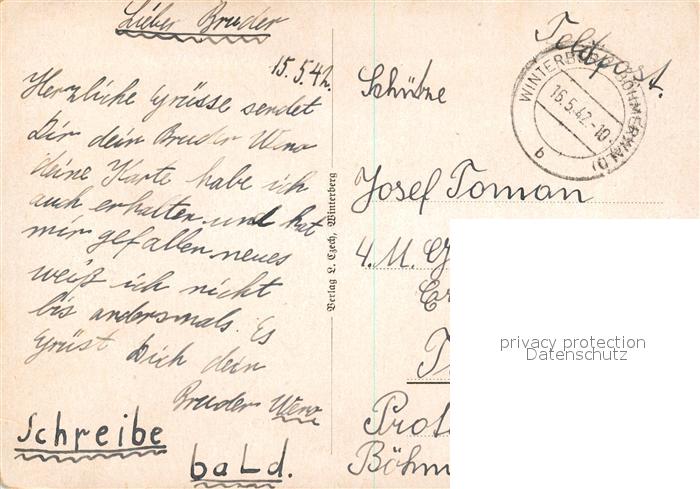 Lieber Bruder
15.5.42.
Herzliche Grüsse sendet
Dir dein Bruder Weno
deine Karte habe ich
auch erhalten und hat
mir gefallen neues
weiß ich nicht
bis andersmals. Es
Grüst Dich dein
Bruder Weno
Schreibe
bald.
Verlag L. Czech, Winterberg
Feldpost.
WINTERBERG (BÖHMERWALD)
16.5.42.-10
b
Schütze
Josef Toman
4.M.
Böhm
privacy protection
Datenschutz